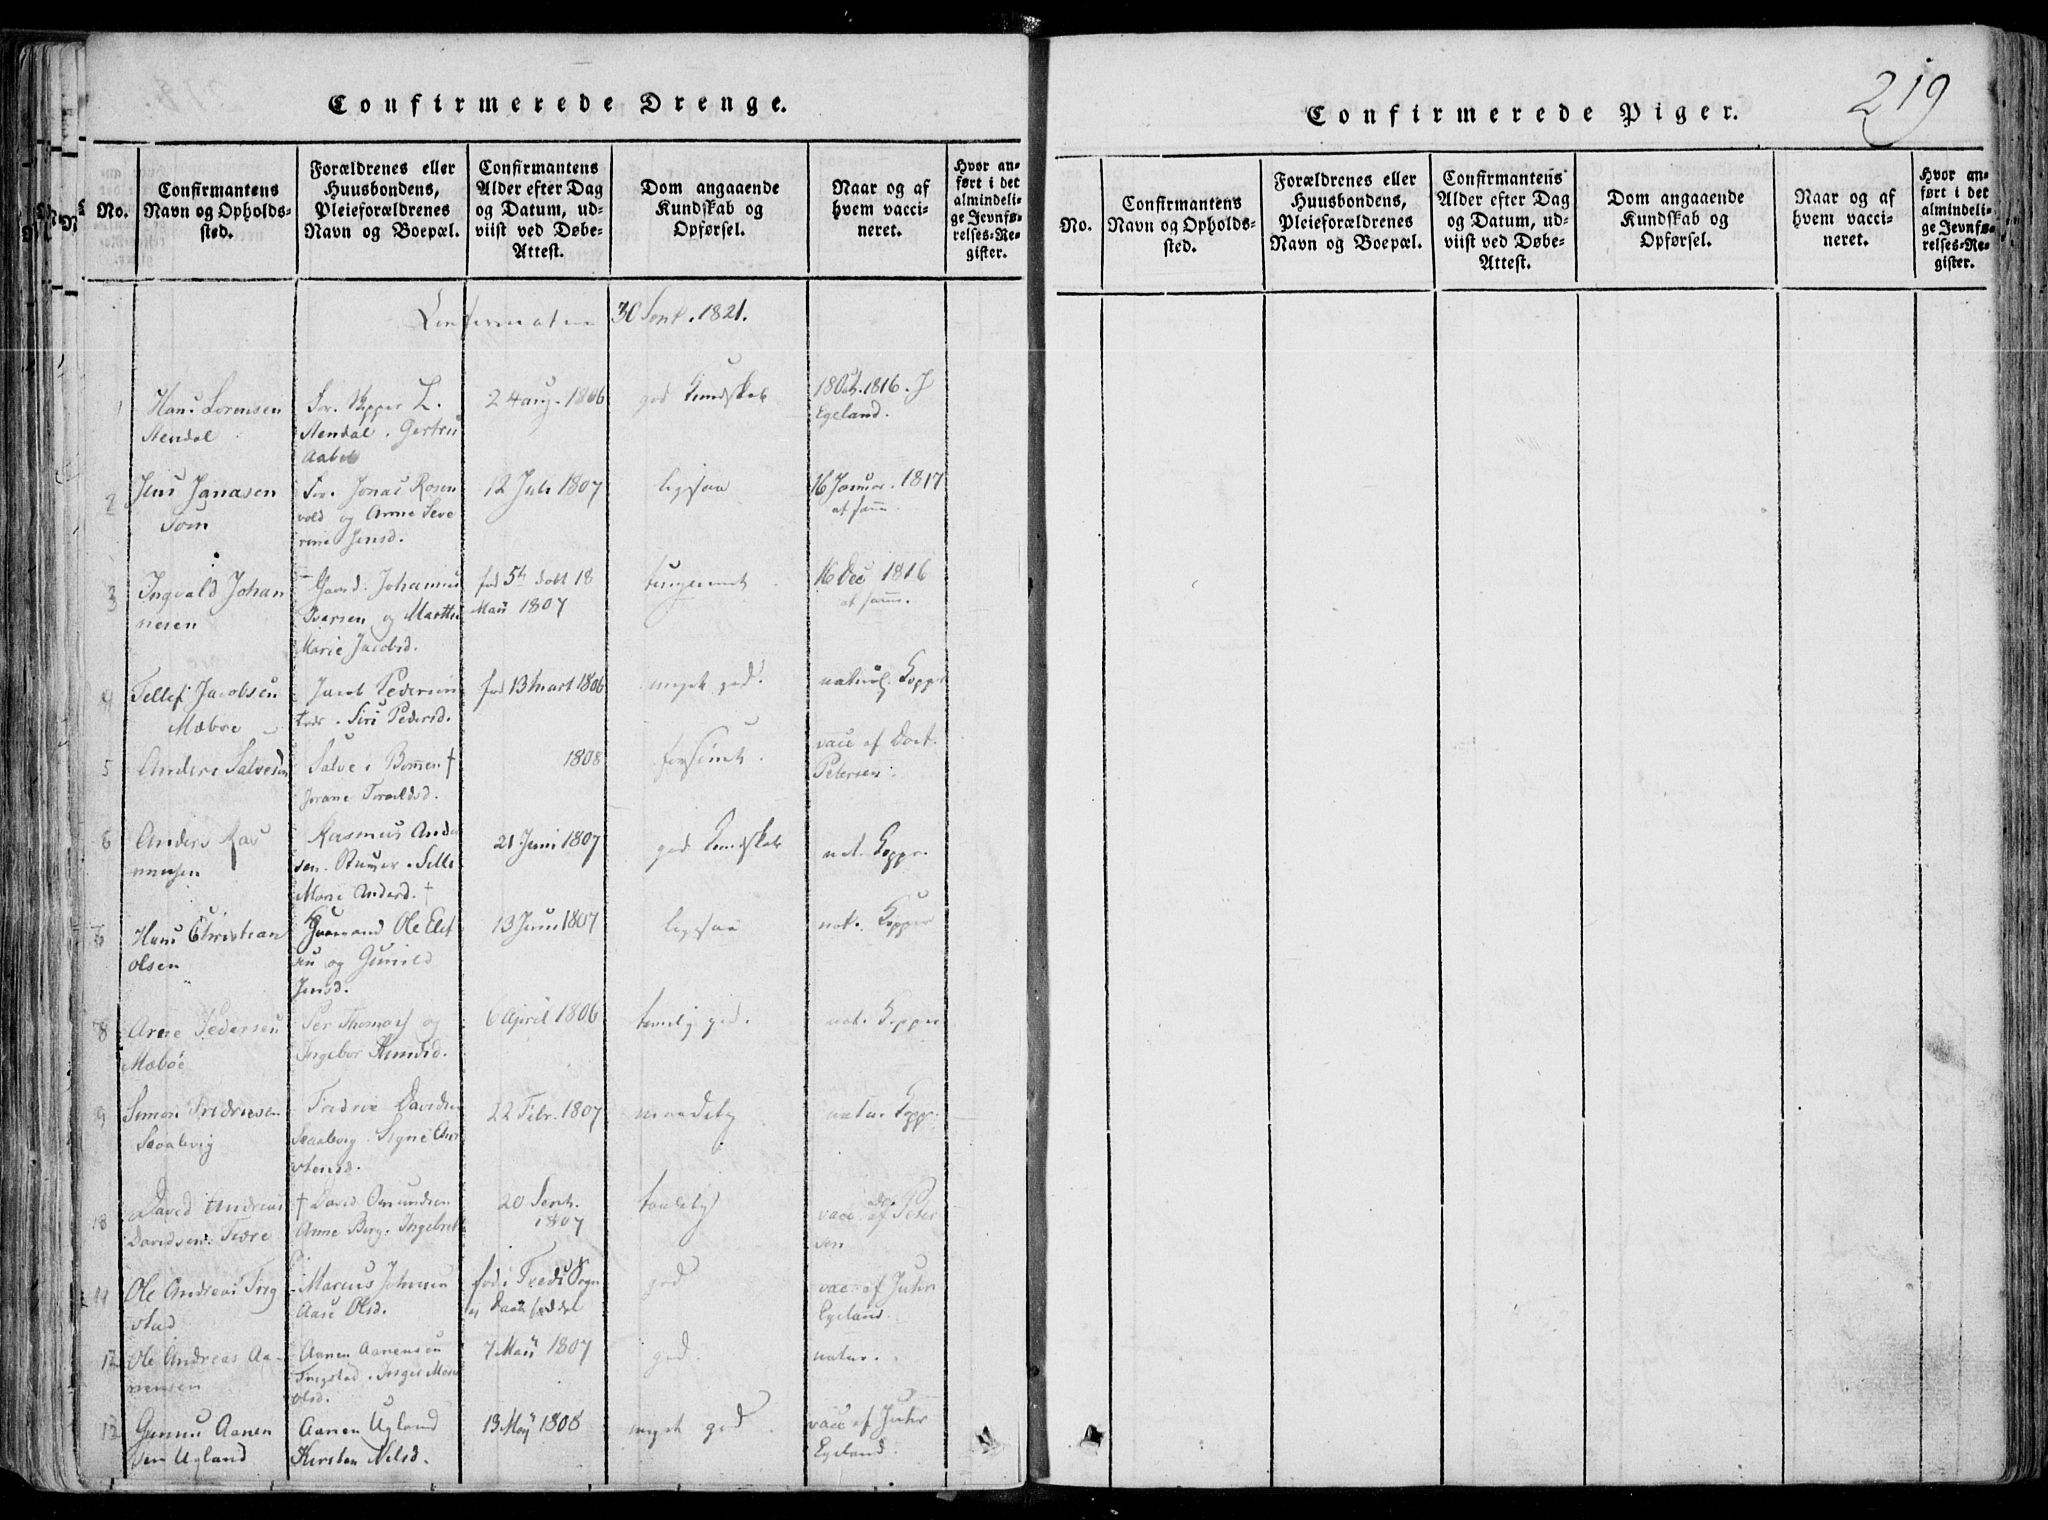 Confirmerede Drenge.
No.
Confirmantens
Navn og Opholds-
sted.
Forældrenes eller
Huusbondens,
Pleieforældrenes
Navn og Boepæl.
Confirmantens
Alder efter Dag
og Datum, ud-
viist ved Døbe-
Attest.
Dom angaaende
Kundskab og
Opførsel.
Naar og af
hvem vacci-
neret.
Hvor an-
ført i det
almindeli-
ge Jevnfø-
relses-Re-
gister.
30 Sept. 1821.
1
Hans Sorensen
Stendal
Sør.
Stendal. Gertru
24 aug. 1806
god Kundskab
18 Oct. 1816. J
Egeland.
2
Jens Janasen
Sor. Jonas Rosen
vold og Anne Seve
rine Jensd.
12 Juli 1807
ligesaa
16 Januar. 1817
af samm
3
Ingvald Johan
nesen
Johannes
Iversen og Marthe
Marie Jacobsd.
fød 5te døbt 18
Maii 1807
16 Dec 1816
af samm.
4
Tellef Jacobsen
Mæbøe
Jacob Pedersen
Siri Pedersd.
fød 13 Mart 1806
meget god
naturl. Kopper
5
Anders Salvesen
Salve i Bommen †
1808
forsømt.
vacc af Doct.
Petersen
6
Anders Ras
mussen
Rasmus Ander
sen. Stuuer. Sille
Marie Andersd. †
21 Juni 1807
god Kundskab
nat. Koppr.
Hans Christian
Olsen
Ole Ellef
sen og Gunild
Jensd.
13 Juni 1807
ligesaa
nat. Kopper
8
Arne Pedersen
Mæbøe
Per Thomas og
Ingebor
6 April 1806
temelig god.
nat. Kopper
9
Simon Fredricsen
Skaalevig
Fredric Davidsen
Skaalevig. Signe Chri
stensd.
22 Febr. 1807
maadelig
natur. Kopp.
David Andreas
Davidsen
† David Omundsen
Anne Berg. Ingebret
20 Sept.
1807
taalelig
vacc af Peter
sen
11
Ole Andreas Trig
stad
Marcus Johnsen
Aase Olsd.
god
vacc af Juhr
Egeland.
12
Ole Andreas Aa-
nensen
Aanen Aanensen
Trigstad. Inger Marie
Olsd.
7 Maii 1807
god.
natur.
Gunnu Aanen
sen Ugland
Aanen Ugland
Kirsten Nilsd.
13 Maij 1806
meget god
vacc af Juhr
Egeland
219
Confirmerede Piger.
No.
Confirmantens
Navn og Opholds-
sted.
Forældrenes eller
Huusbondens,
Pleieforældrenes
Navn og Boepæl.
Confirmantens
Alder efter Dag
og Datum, ud-
viist ved Døbe-
Attest.
Dom angaaende
Kundskab og
Opførsel.
Naar og af
hvem vacci-
neret.
Hvor an-
ført i det
almindeli-
ge Jevnfø-
relses-Re-
gister.